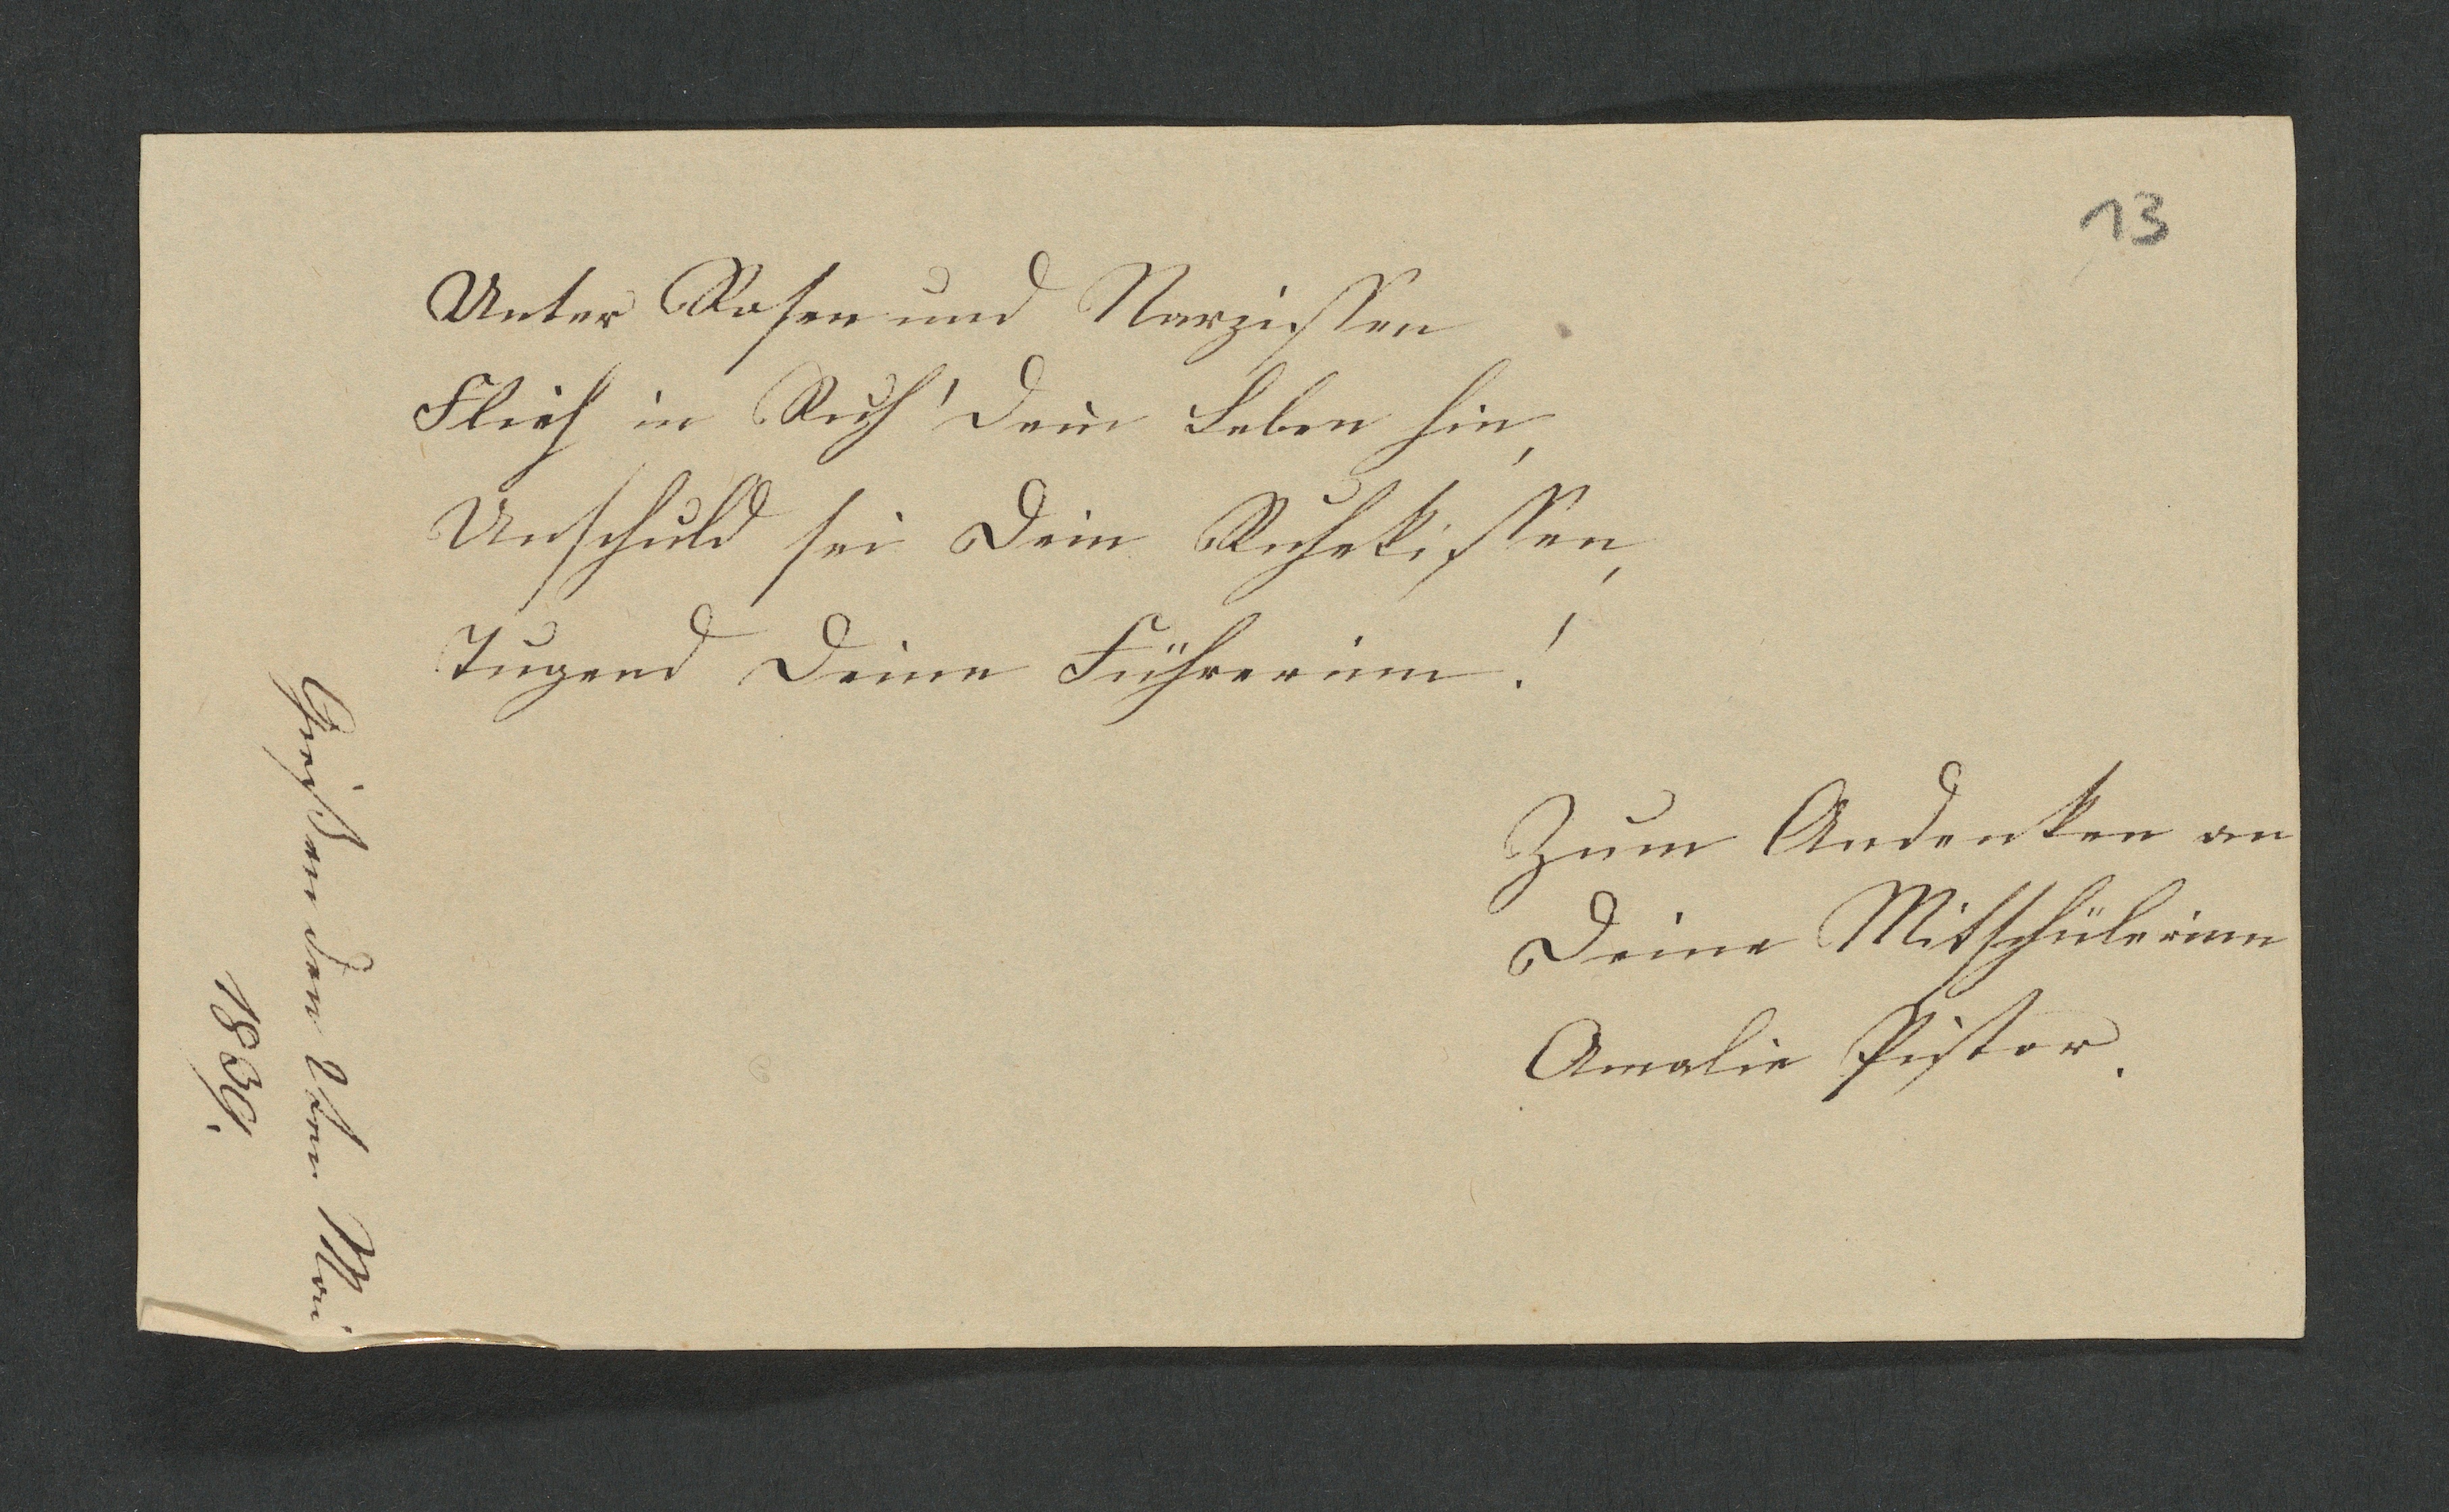 13
Unter Rosen und Narzissen
Flieh in Ruh' dein Leben hin,
Unschuld sei Dein Ruhekissen,
Tugend Deine Führerinn!
Zum Andenken an
Deine Mitschülerinn
Amalie Pistor.
Gießen den Mai
1839.